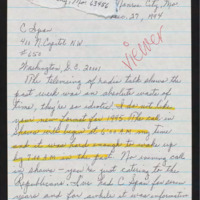 Mo 63486 Vienna, Mo.
Nov. 27, 1994
C Span
400 N. Capitol N.W.
#650
Washington, D.C. 20001
VIEWER
The televising of radio talk shows the
past week was an absolute waste of
time, they're so idiotic. I do not like
your new format for 1995. The call in
shows will begin at 6:00 A.M. my time
and it was hard enough to wake up
by 7:00 A.M. in the past. No evening call
in shows - you're just catering to the
Republicans. I've had C Span for some
years and for awhile it was informative